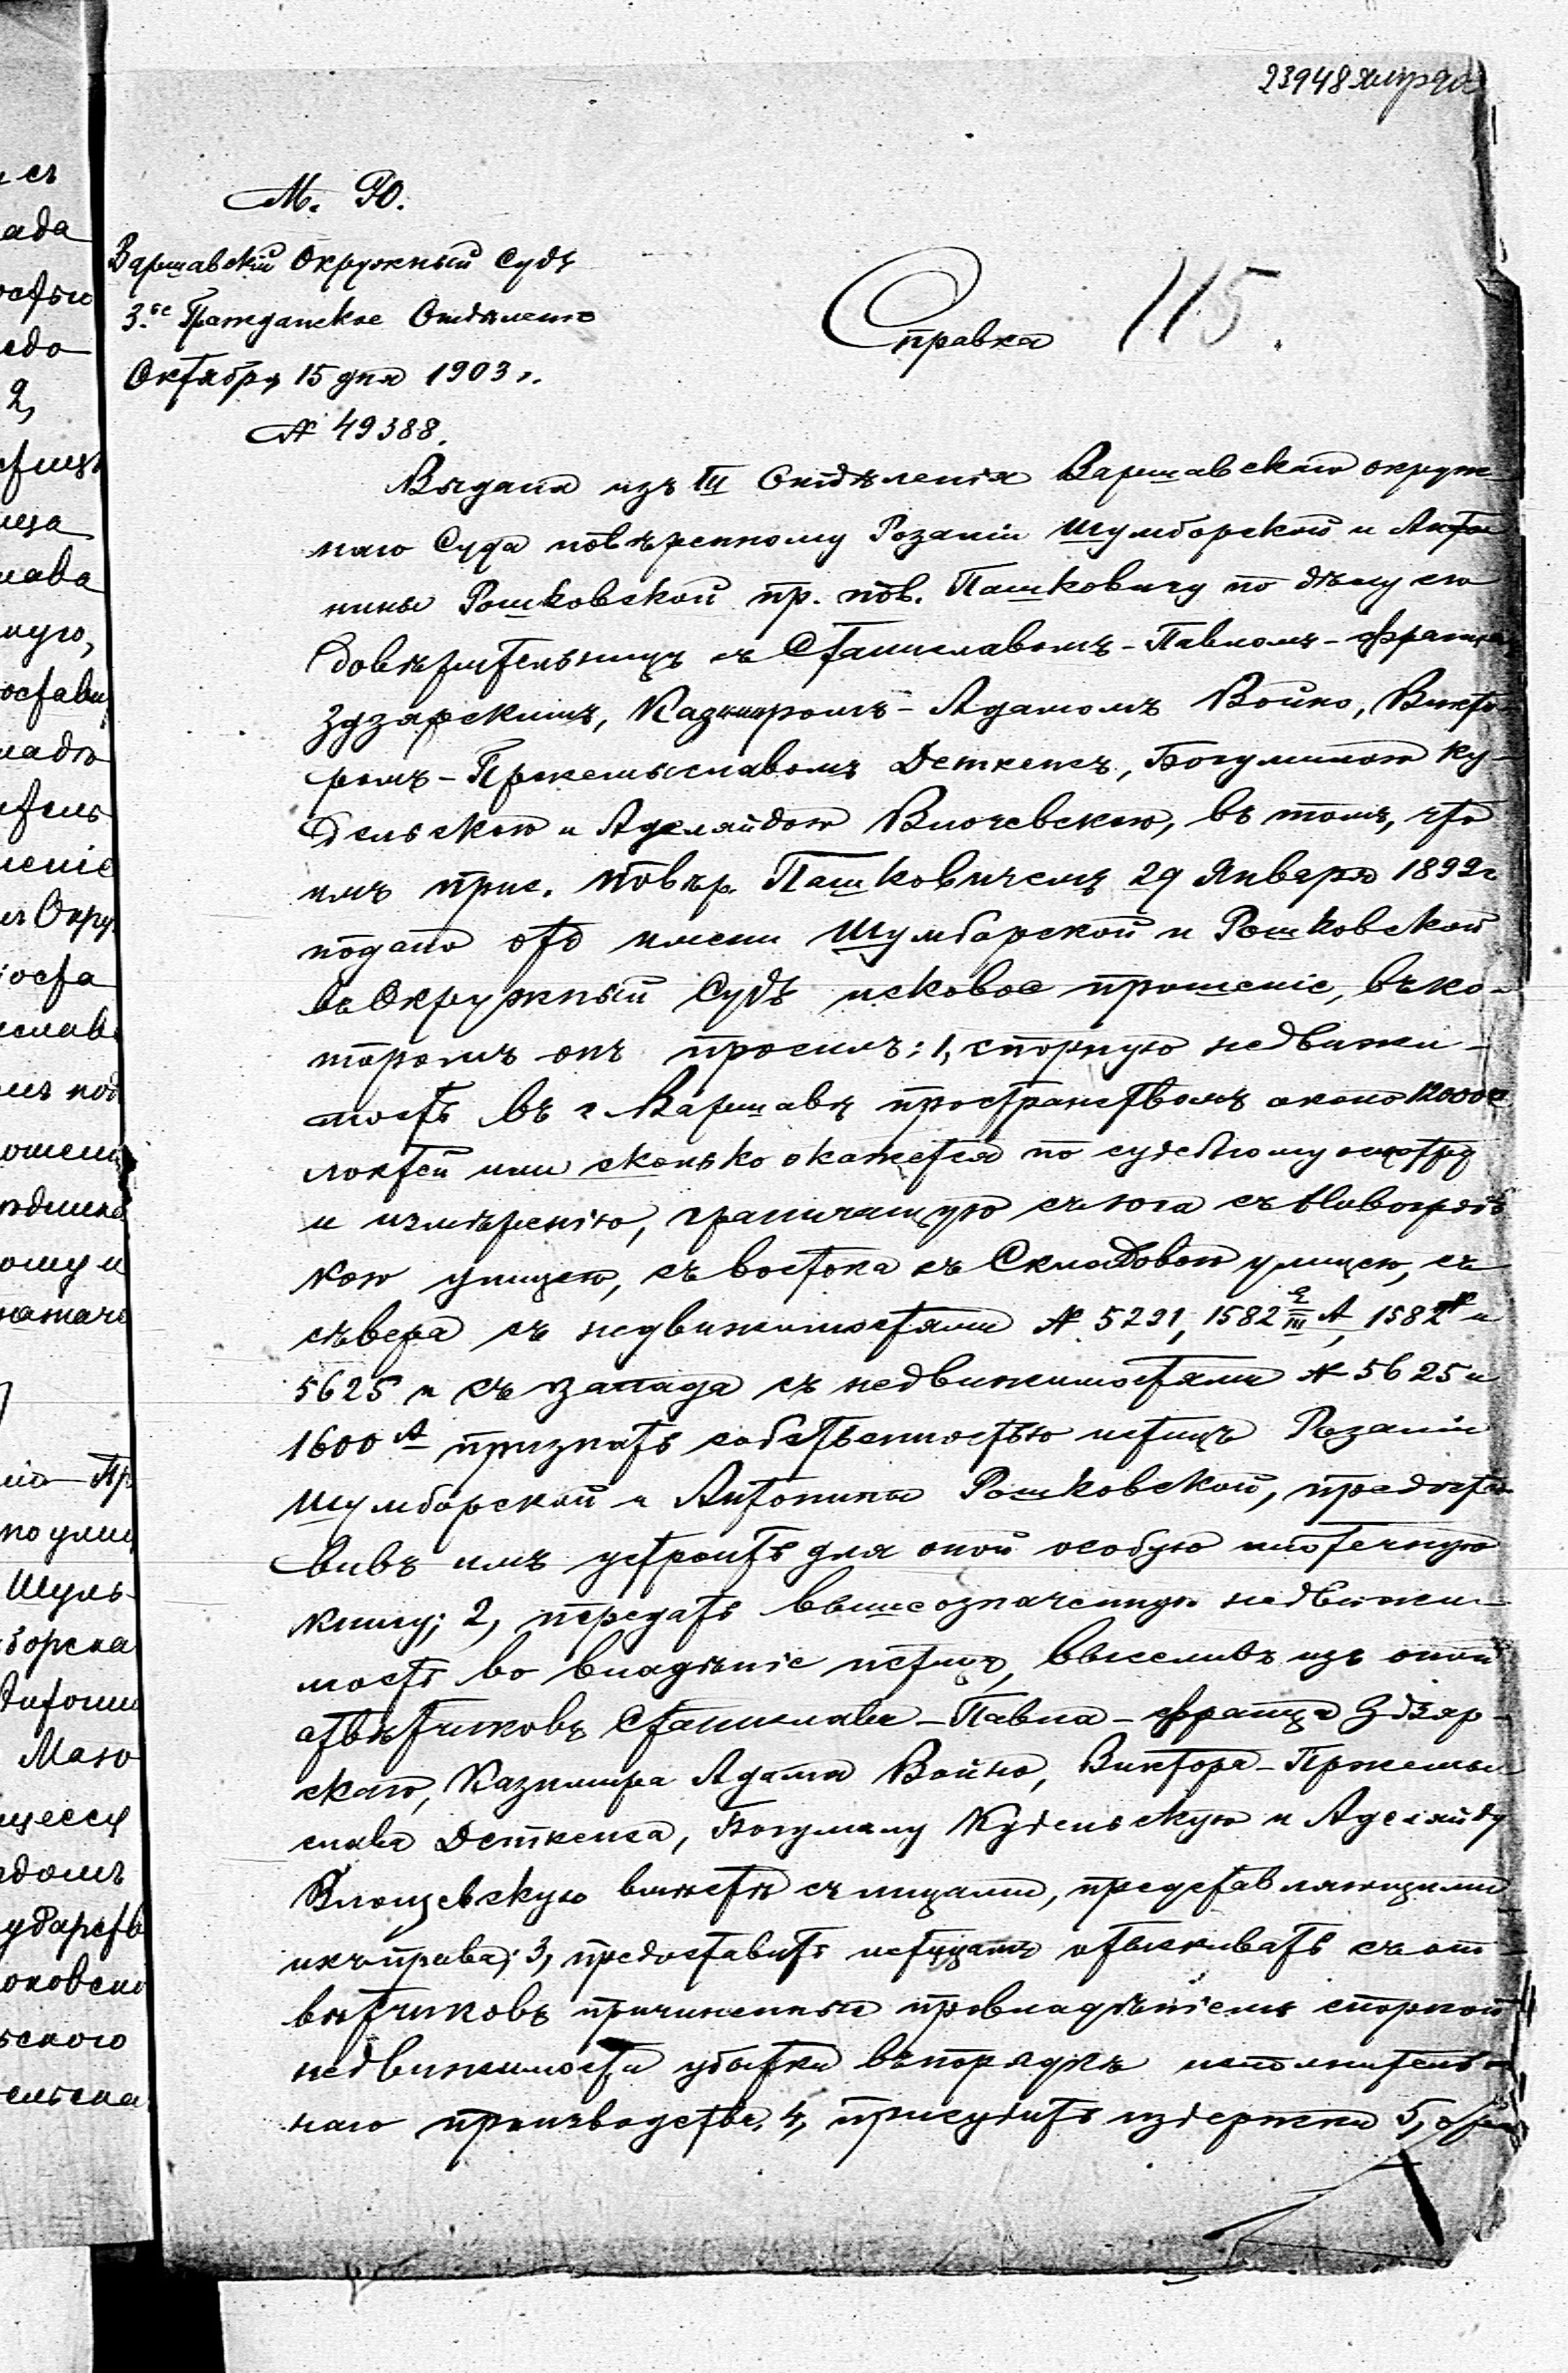 23948
М. Ю.
Варшавскій Окружный Судъ
3.ое Гражданское Отдѣленіе
Октября 15 дня 1903 г.
№ 49388.
Справка 115.
Выдана изъ III Отдѣленія Варшавскаго окруж-
наго Суда повѣренному Розаліи Шумборской и Анто
нины Рошковской пр. пов. Пашковичу по дѣлу его
довѣрительницъ съ Станиславомъ-Павломъ-Франц
Здзярскимъ, Казимиромъ-Адамомъ Войно, Викто-
ромъ-Пржемыславомъ Деткенсъ, Богумилою Ку-
дельскою и Аделяидою Влочевскою, въ томъ, что
имъ прис. повѣр. Пашковичемъ 29 Января 1899 г
подано отъ имени Шумборской и Рошковской
въ Окружный Судъ исковое прошеніе, въ ко-
торомъ онъ просилъ: 1, спорную недвижи-
мость въ г. Варшавѣ пространствомъ около 12000
локтей или сколько окажется по судебному осмотру
и измѣренію, граничащую съ юга съ Новогродз
кою улицею, съ востока съ Складовою улицею, съ
сѣвера съ недвижимостями № 5291, 1582 III А, 1582 и
5625 и съ запада съ недвижимостями № 5625 и
1600 А признать собственностью истицъ Розаліи
Шумборской и Антонины Рошковской, предоста-
вивъ имъ устроить для оной особую ипотечную
книгу; 2, передать вышеозначенную недвижи-
мость во владѣніе истицъ, выселивъ изъ оной
отвѣтчиковъ Станислава-Павла-Франца Здзяр-
скаго, Казимира Адама Войно, Виктора-Пржемы
слава Деткенса, Богумилу Кудельскую и Аделяиду
Влощевскую вмѣстѣ съ лицами, представляющими
ихъ права; 3, предоставить истцамъ отыскивать съ от-
вѣтчиковъ причиненные провладѣніемъ спорной
недвижимости убытки въ порядкѣ исполнитель-
наго производства, 4, присудить издержки 5,